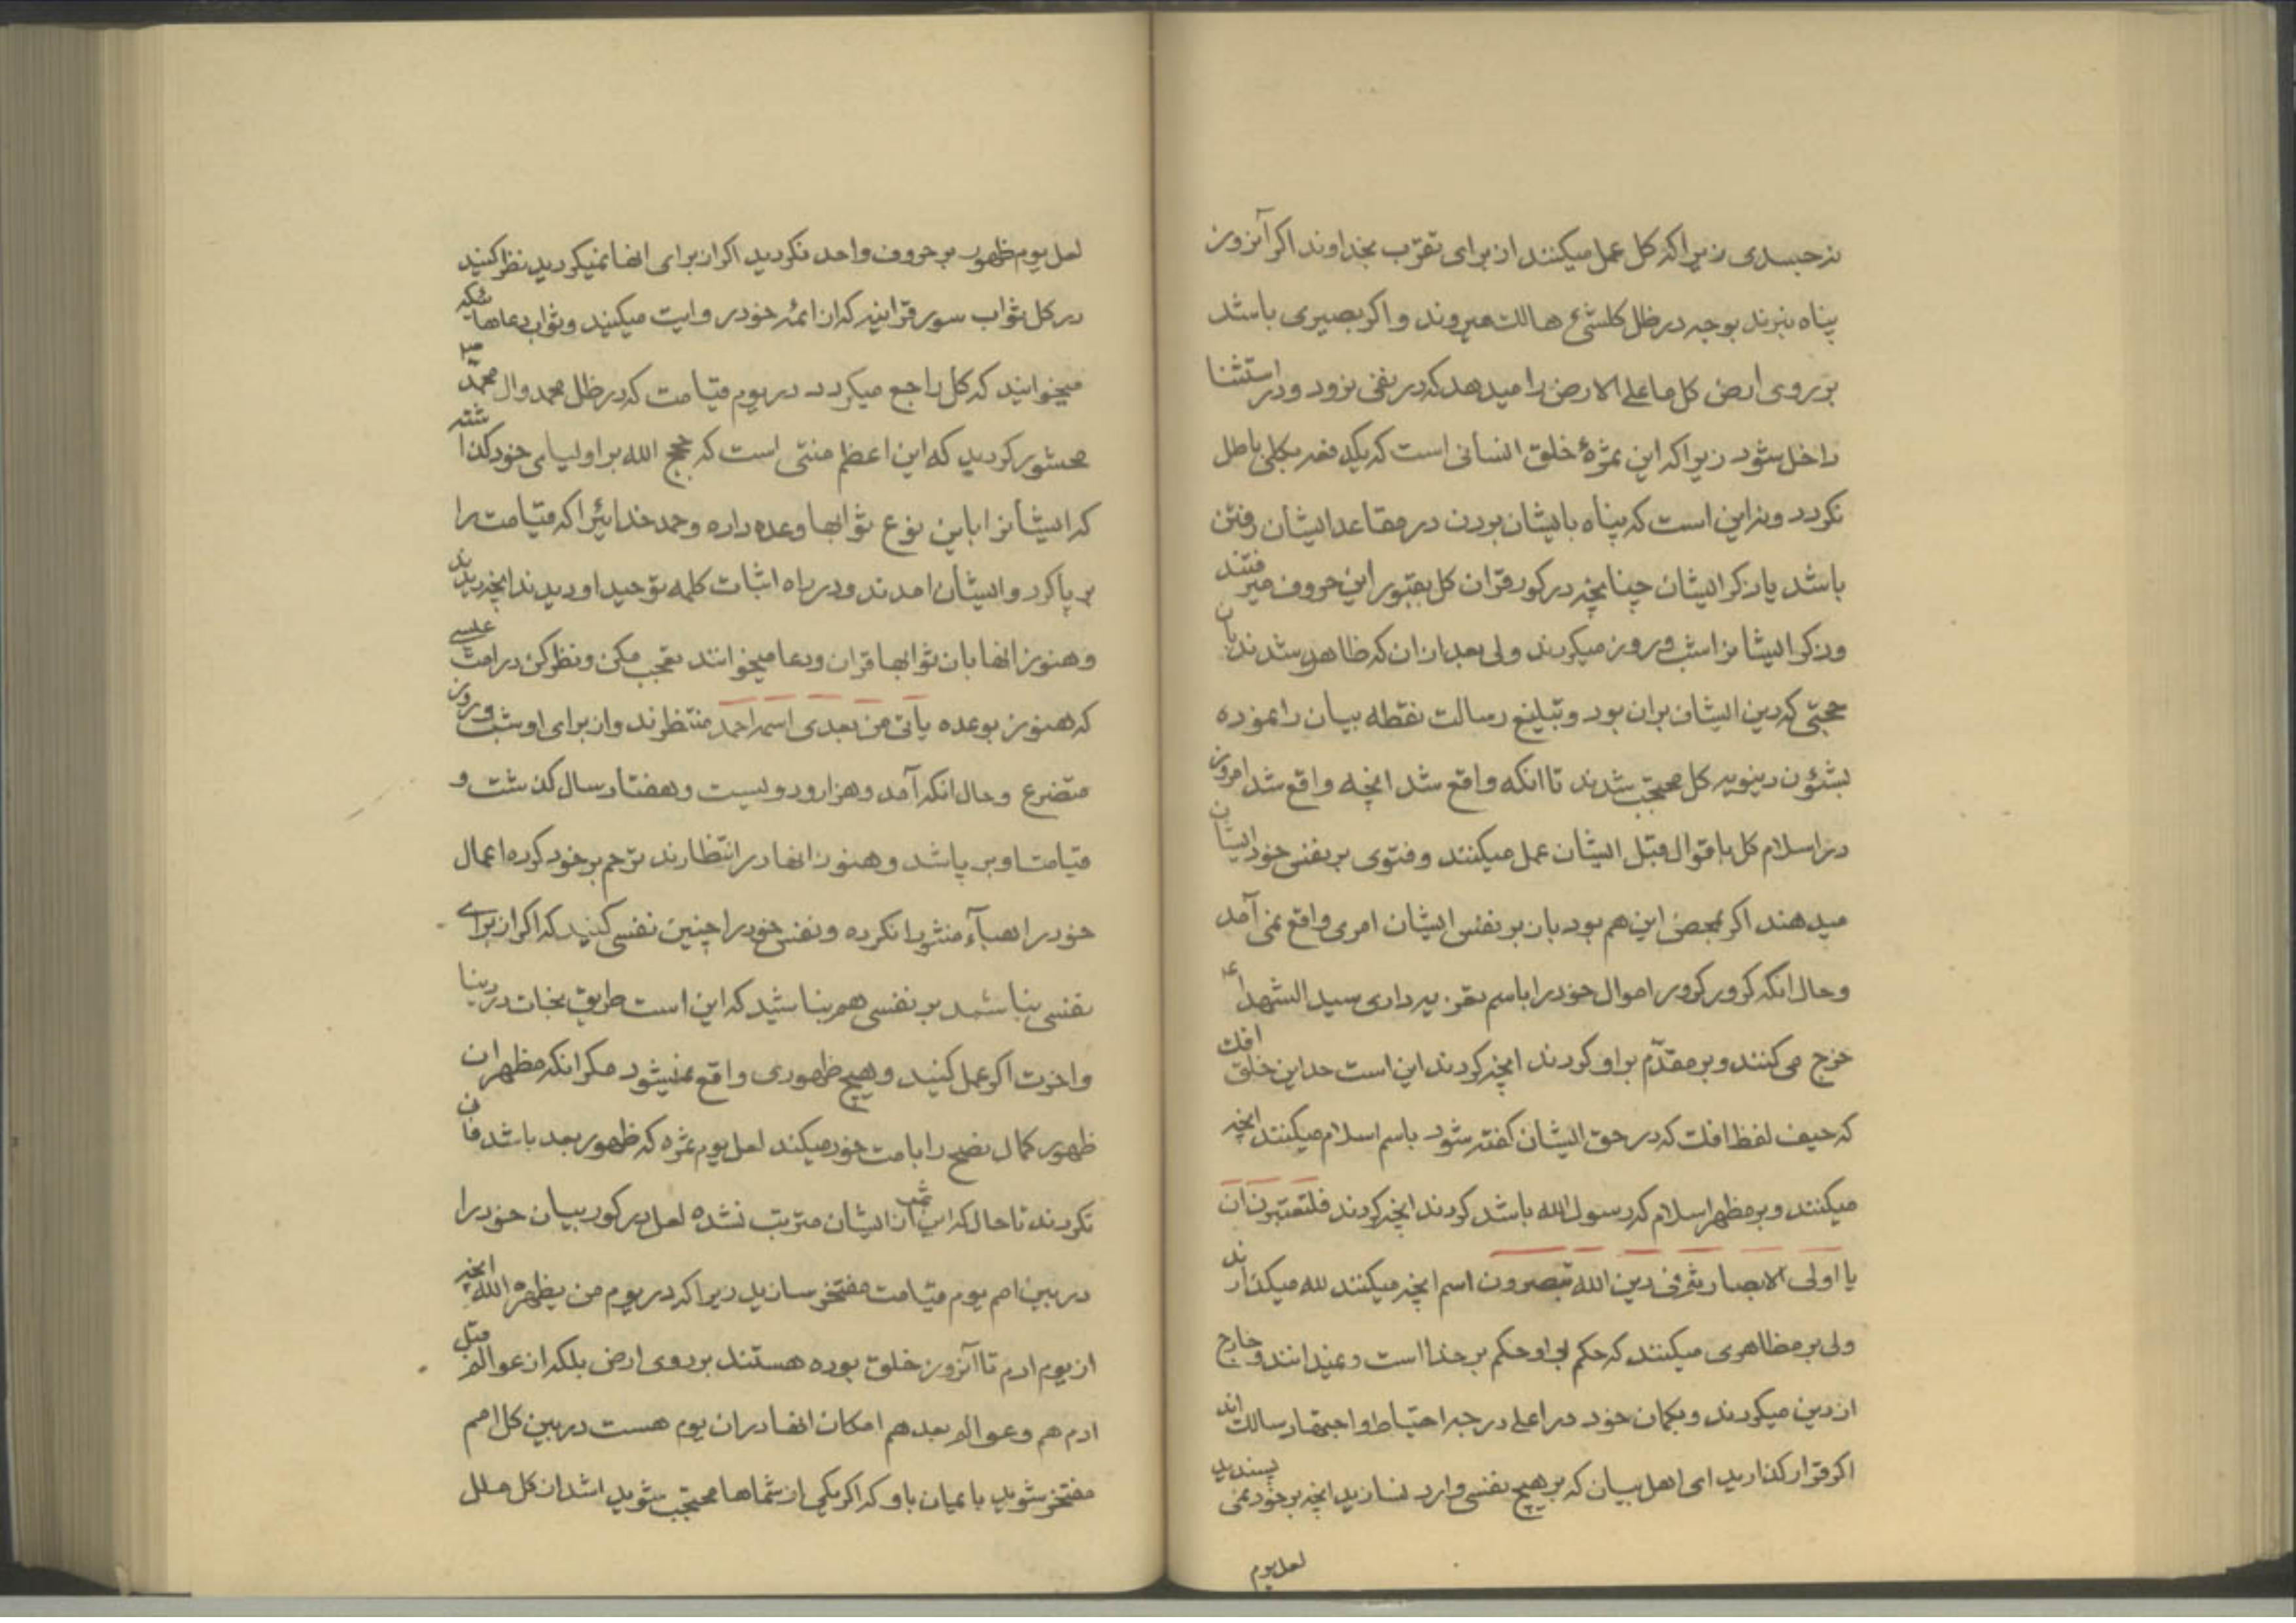 نه جسدی زیرا که کل عمل میکنند از برای تقرب بخداوند اکر آنروز
پناه نبرند بوجه در ظل کلشیء هالك میروند و اکر بصیری باشد
بر روی ارض کل ما علی الارض را میدهد که در نفی نرود و در استثنا
داخل شود زیرا که این ثمرهٔ خلق انسانی است که یکدفعه بکلی باطل
نکردد و نه این است که پناه بایشان بردن در مقاعد ایشان رفتن
باشد یا ذکر ایشان چنانچه در کور قران کل بقبور این حروف میرفتند
و ذکر ایشانرا شب و روز میکردند ولی بعد از ان که ظاهر شدند بان
حجتی که دین ایشان بران بود و تبلیغ رسالت نقطه بیان را نموده
بشئون دینویه کل محتجب شدند تا انکه واقع شد انچه واقع شد امروز
در اسلام کل باقوال قبل ایشان عمل میکنند و فتوی بر نفس خود ایشان
میدهند اکر بمحض این هم بود بان بر نفس ایشان امری واقع نمی آمد
و حال انکه کرور کرور اموال خود را باسم تعزیه داری سید الشهداء ع
خرج می کنند و بر مقدم بر او کردند انچه کردند این است حد این خلق افك
که حیف لفظ افك که در حق ایشان کفته شود باسم اسلام میکنند انچه
میکنند و بر مظهر اسلام که رسول الله باشد کردند انچه کردند فلتعتبرن ان
یا اولی الابصار ثم فی دین الله تبصرون اسم انچه میکنند لله میکذارند
ولی بر مظاهری میکنند که حکم بر او حکم بر خدا است و نمیدانند و خارج
از دین میکردند و بکمان خود در اعلی درجه احتیاط و اجتهاد سالك اند
اکر قرار کذارید ای اهل بیان که بر هیچ نفسی وارد نسازید انچه بر خود نمی پسندید
لعل یوم
لعل یوم ظهور بر حروف واحد نکردید اکر از برای انها نمیکردید نظر کنید
در کل ثواب سور قرانیه که از ائمه خود روایت میکنید و ثواب دعاهائیکه
میخوانید که کل راجع میکردد در یوم قیامت که در ظل محمد و ال محمد ص
محشور کردید که این اعظم منتی است که حجج الله بر اولیای خود کذاشته
که ایشانرا باین نوع ثوابها وعده داده و حمد خدائیرا که قیامت را
بر پا کرد و ایشان امدند و در راه اثبات کلمه توحید او دیدند انچه دیدند
و هنوز انها بان ثوابها قران و دعا میخوانند تعجب مکن و نظر کن در امت عیسی
که هنوز بوعده یاتی من بعدی اسمه احمد منتظرند و از برای او شب و روز
متضرع و حال انکه آمد و هزار و دویست و هفتاد سال کذشت و
قیامت او بر پا شد و هنوز انها در انتظارند ترحم بر خود کرده اعمال
خود را هباء منثورا نکرده و نفس خود را چنین نفسی کنید که اکر از برای
نفسی نباشد بر نفسی هم نباشید که این است طریق نجات در دنیا
و اخرت اکر عمل کنید و هیچ ظهوری واقع نمیشود مکر انکه مظهر ان
ظهور کمال نصح را بامت خود میکند لعل یوم ثمره که ظهور بعد باشد فان
نکردند تا حال که این ثمره از ایشان مترتب نشده لعل در کور بیان خود را
در بین امم یوم قیامت مفتخر سازید زیرا که در یوم من یظهره الله انچه
از یوم ادم تا آنروز خلق بوده هستند بر روی ارض بلکه از عوالم قبل
ادم هم و عوالم بعد هم امکان انها در ان یوم هست در بین کل امم
مفتخر شوید با یمان باو که اکر یکی از شماها محتجب شوید اشد از کل ملل